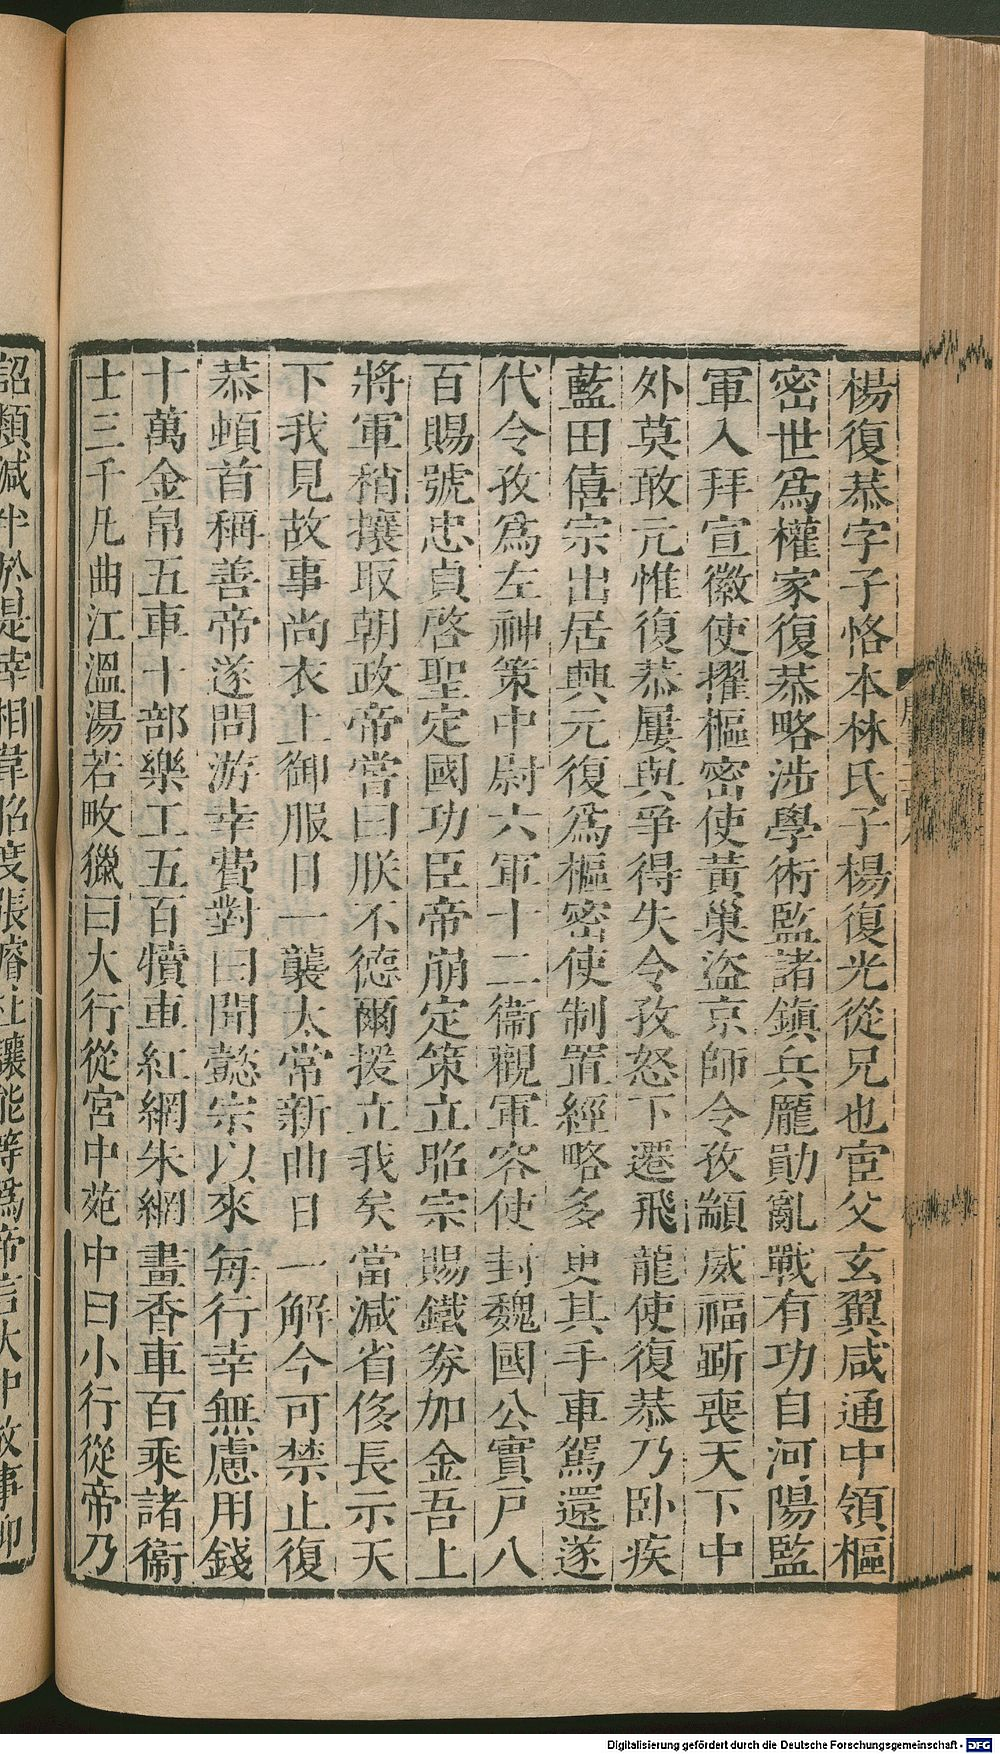 楊復恭字子恪本林氏子楊復光從兄也宦父玄翼咸通中領樞
密世爲權家復恭略涉學術監諸鎮兵龐勛亂戰有功自河陽監
軍入拜宣徽使擢樞密使黃巢盜京師令孜顓威福斲喪天下中
外莫敢亢惟復恭屢與爭得失令孜怒下遷飛龍使復恭乃卧疾
藍田僖宗出居興元復爲樞密使制置經略多更其手車駕還遂
代令孜爲左神策中尉六軍十二衞觀軍容使封魏國公實戶八
百賜號忠貞啓聖定國功臣帝崩定策立昭宗賜鐵券加金吾上
將軍稍攘取朝政帝嘗曰朕不德爾援立我矣當減省侈長示天
下我見故事尚衣上御服日一襲太常新曲日一解今可禁止復
恭頓首稱善帝遂問游幸費對曰聞懿宗以來每行幸無慮用錢
十萬金帛五車十部樂工五百犢車紅網朱網畫香車百乘諸衞
士三千凡曲江溫湯若畋獵曰大行從宮中苑中曰小行從帝乃
詔類減半於是宰相韋昭度張濬杜讓能等爲帝言大中故事抑
Digitalisierung gefördert durch die Deutsche Forschungsgemeinschaft - DFG